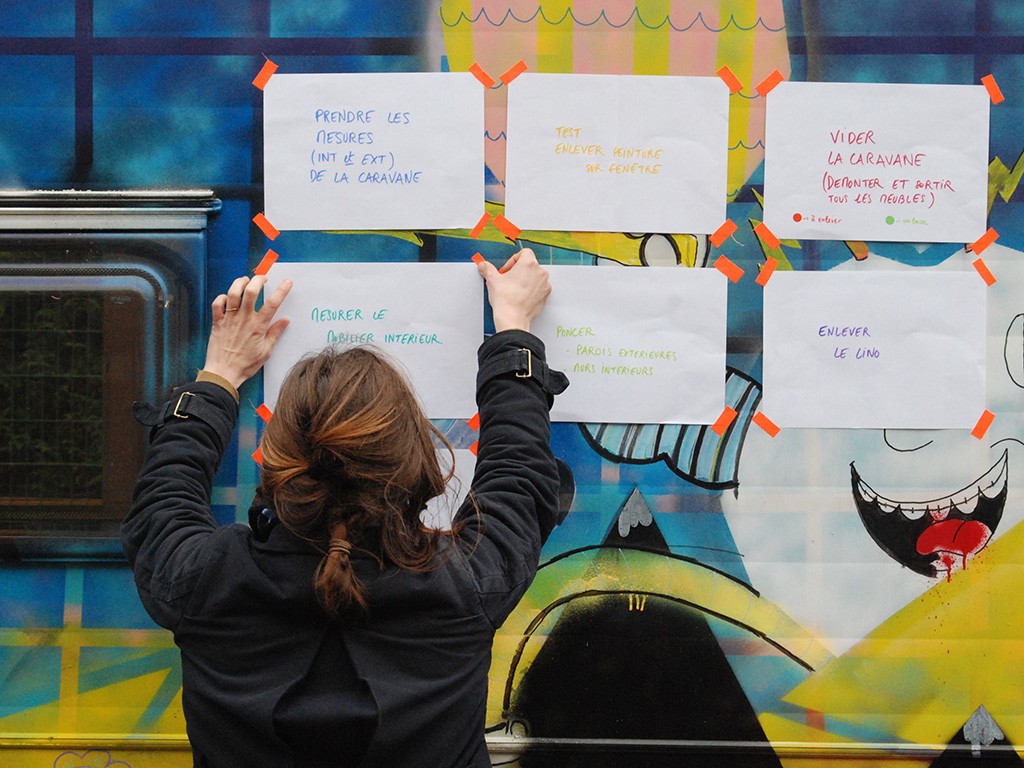 PRENDRE LES
MESURES
(INT et EXT)
DE LA CARAVANE
TEST
ENLEVER PEINTURE
SUR FENÊTRE
VIDER
LA CARAVANE
(DEMONTER ET SORTIR
TOUS LES MEUBLES)
à enlever
MESURER LE
MOBILIER INTERIEUR
PONCER
- PAROIS EXTERIEURES
- MURS INTERIEURS
ENLEVER
LE LINO